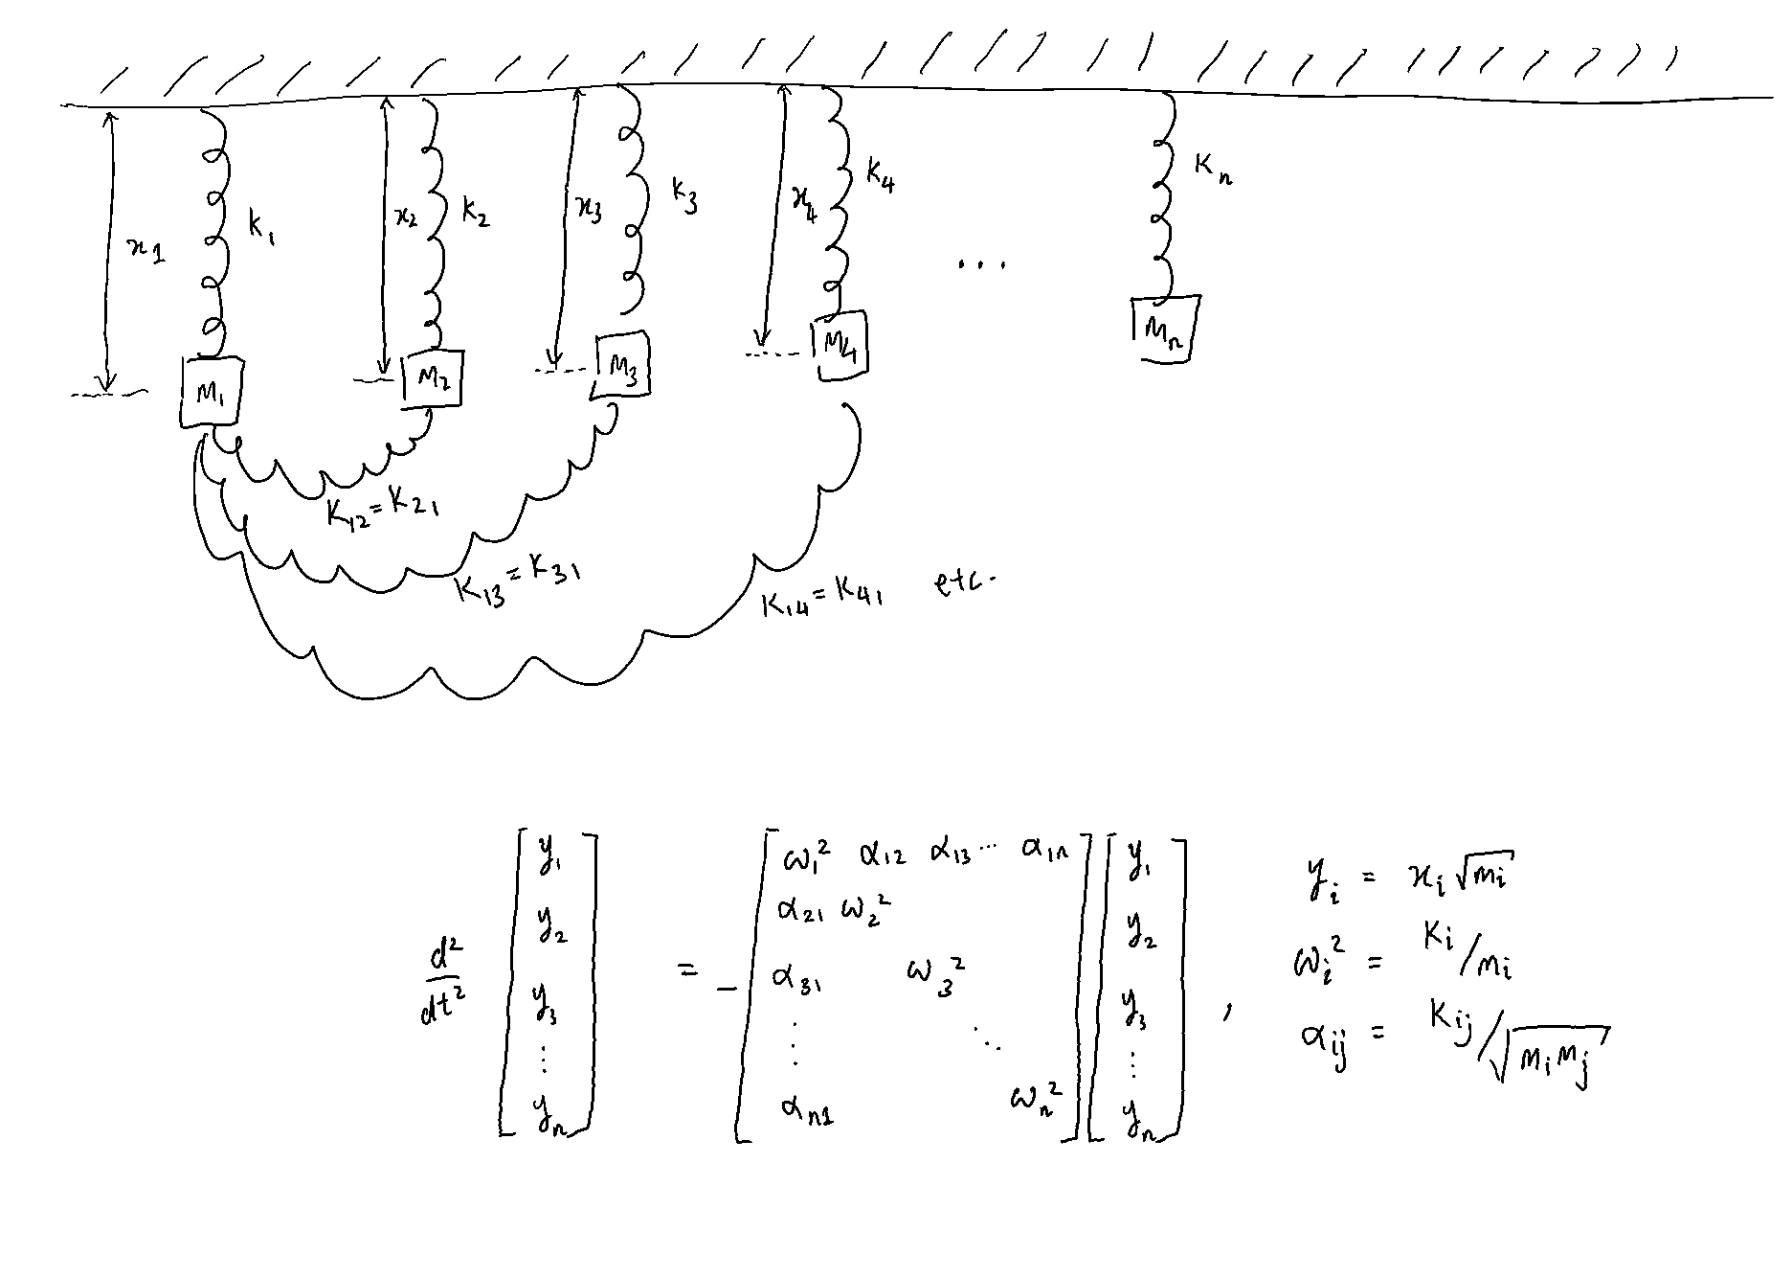 x₁ K₁ x₂ K₂ x₃ K₃ x₄ K₄ ... Kₙ
M₁ M₂ M₃ M₄ Mₙ
K₁₂ = K₂₁
K₁₃ = K₃₁
K₁₄ = K₄₁ etc.
d²/dt² [y₁ y₂ y₃ ⋮ yₙ] = - [ω₁² α₁₂ α₁₃ ... α₁ₙ
α₂₁ ω₂²
α₃₁ ω₃²
⋮ ⋱
αₙ₁ ωₙ²] [y₁ y₂ y₃ ⋮ yₙ] ,
yᵢ = xᵢ √mᵢ
ωᵢ² = Kᵢ/mᵢ
αᵢⱼ = Kᵢⱼ/√mᵢmⱼ